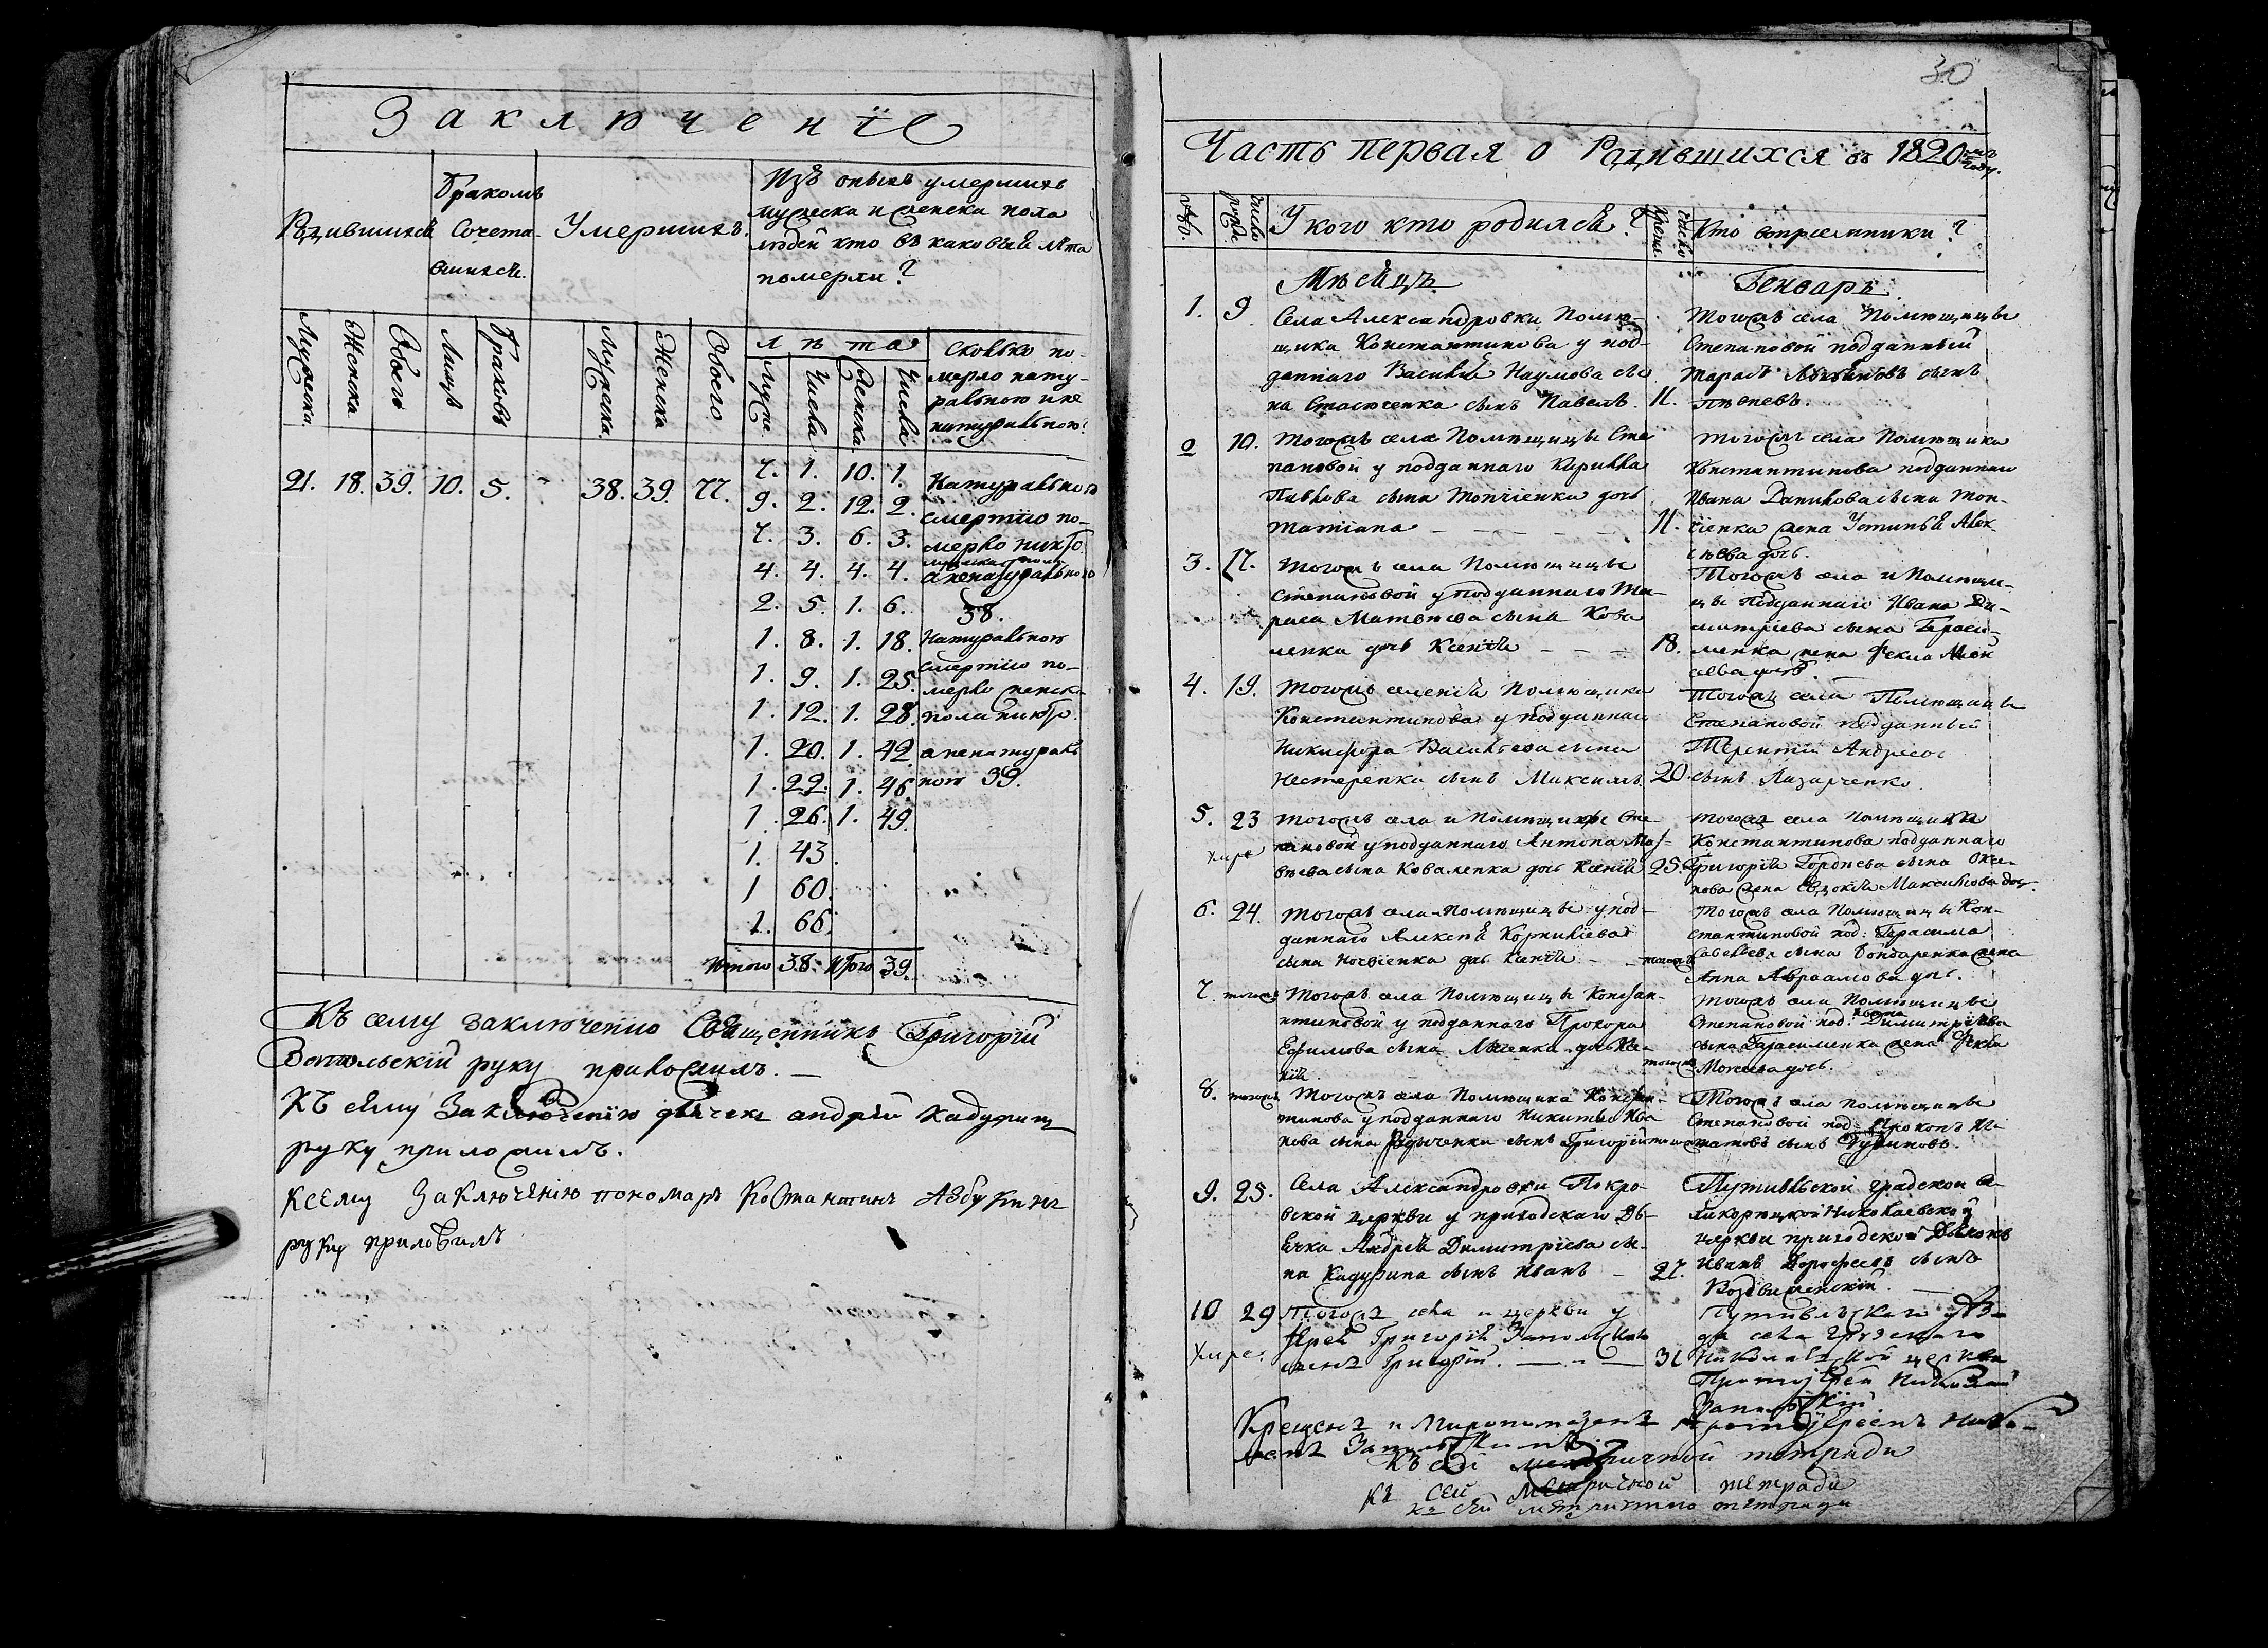 Заключенїе
Родившихся
Бракомъ
Сочета-
вшихся.
Умершихъ.
Изъ оныхъ умершихъ
мужеска и женска пола
людей кто въ каковыя лѣта
померли?
Мужеска.
Женска
Обоего
Лицъ
Браковъ
Мужеска.
Женска
Обоего
лѣта
Муже.
Числа
Женска
Числа
Сколько по-
мерло нату-
ральною и не
натуральною?
21. 18. 39. 10. 5. 38. 39. 77.
7. 1. 10. 1.
9. 2. 12. 2.
7. 3. 6. 3.
4. 4. 4. 4.
2. 5. 1. 6.
1. 8. 1. 18.
1. 9. 1. 25.
1. 12. 1. 28.
1. 20. 1. 42.
1. 22. 1. 46.
1. 26. 1. 49.
1. 43.
1 60.
1. 66.
Итого 38. Итого 39.
Натуральною
смертїю по-
мерло
38.
Натуральною
смертїю по-
мерло женска
пола никто.
а ненатураль
ною 39.
Къ сему заключенїю Священникъ Григорїй
руку приложилъ.
Къ сему Заключенїю дьячекъ андрей кадурин
руку приложилъ.
Ксему Заключенїю пономарь Костантинъ Азбукинъ
руку приложилъ
30
Часть первая о Родившихся въ 1820мъ году.
Число рожде.
У кого кто родился?
Число креще.
Кто воспрїемники?
Мѣсяцъ
Генварь.
1. 9. Села Александровки Помѣ-
щика Константинова у под-
даннаго Василїя Наумова сы-
на Стасюченка сынъ Павелъ. 11.
Тогожъ села Помѣщицы
Степановой подданный
Тарасъ сынъ
2 10. Тогожъ села Помѣщицы Сте
пановой у подданнаго Кирилла
Павлова сына Топчїенка дочь
Татїана 11.
Тогожъ села Помѣщика
Константинова подданнаго
Ивана Данилова сына Топ-
чїенка жена Устинья Алек-
сѣева дочь.
3. 17. Тогожъ села Помѣщицы
Степановой у подданнаго Та-
раса Матвѣева сына Кова
ленка дочь Ксенїя 18.
Тогожъ села и Помѣщи-
цы Подданнаго Ивана Ди-
митрїева сына Гераси-
менка жена Фекла Мои
сеева дочь.
4. 19. Тогожъ селенїя Помѣщика
Константинова у подданнаго
Никифора Васильева сына
Нестеренка сынъ Максимъ. 20.
Тогожъ села Помѣщицы
Степановой подданный
Терентїй Андреевъ
сынъ Лазарченко.
5. 23 Тогожъ села и Помѣщицы Сте-
пановой у подданнаго Антона Мат-
вѣева сына Коваленка дочь Ксенїя 25.
умре
Тогожъ села Помѣщика
Константинова подданнаго
Григорїя Гордѣева сына
жена Евдокїя Максимова дочь.
6. 24. Тогожъ села Помѣщицы у под-
даннаго Алексѣя Корнилїева
сына дочь Ксенїя тогожъ
Тогожъ села Помѣщицы Кон-
стантиновой под: Герасима
Савельева сына Бондаренка жена
Анна Авраамова дочь.
7. тогожъ Тогожъ села Помѣщицы Констан-
тиновой у подданнаго Прохора
Ефимова сына дочь Ксе-
нїя. тогожъ
Тогожъ села Помѣщицы
Степановой под: Ивана Димитрїева
сына Герасименка жена Фекла
Моисеева дочь.
8. тогожъ Тогожъ села Помѣщика Констан-
тинова у подданнаго Никиты Ива
нова сына сынъ Григорїй тогожъ
Тогожъ села помѣщицы
Степановой под: Прокопъ
сынъ
9. 25. Села Александровки Покро-
вской церкви у приходскаго Дь-
ячка Андрея Димитрїева сы-
на Кадурина сынъ Иванъ 27.
Путивльской градской
Николаевской
церкви приходской Дьяконъ
Иванъ Дорофеевъ сынъ
Воздвиженскїй.
10 29 Тогожъ села и церкви у
Їерея Григорїя
сынъ Григорїй. 31
умре.
Путивльскаго уѣз-
да села
Николаевской церкви
Протоїерей Николай
Крещенъ и Миропомазанъ протоїереемъ Нико-
лаемъ
Къ сей метричной тетради
Къ сей метричной тетради
Къ сей метричною тетради